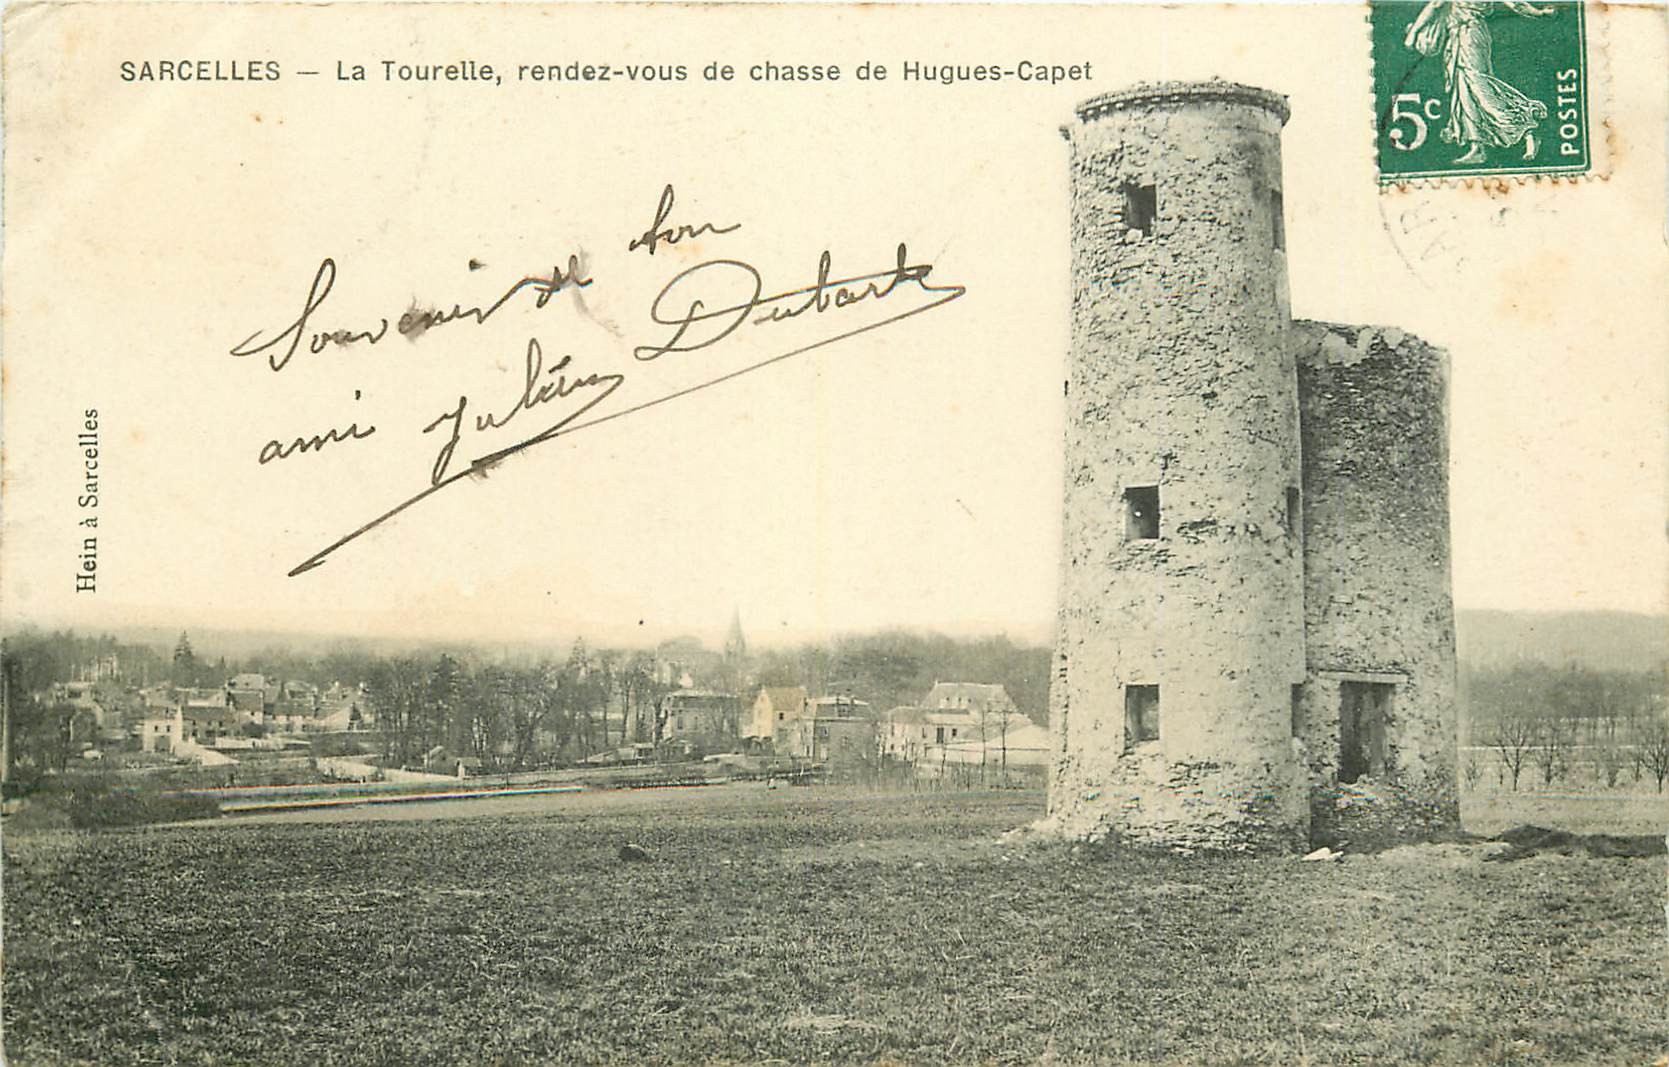 SARCELLES — La Tourelle, rendez-vous de chasse de Hugues-Capet
5c
POSTES
Souvenir de ton
ami Julien Dubarle
Hein à Sarcelles